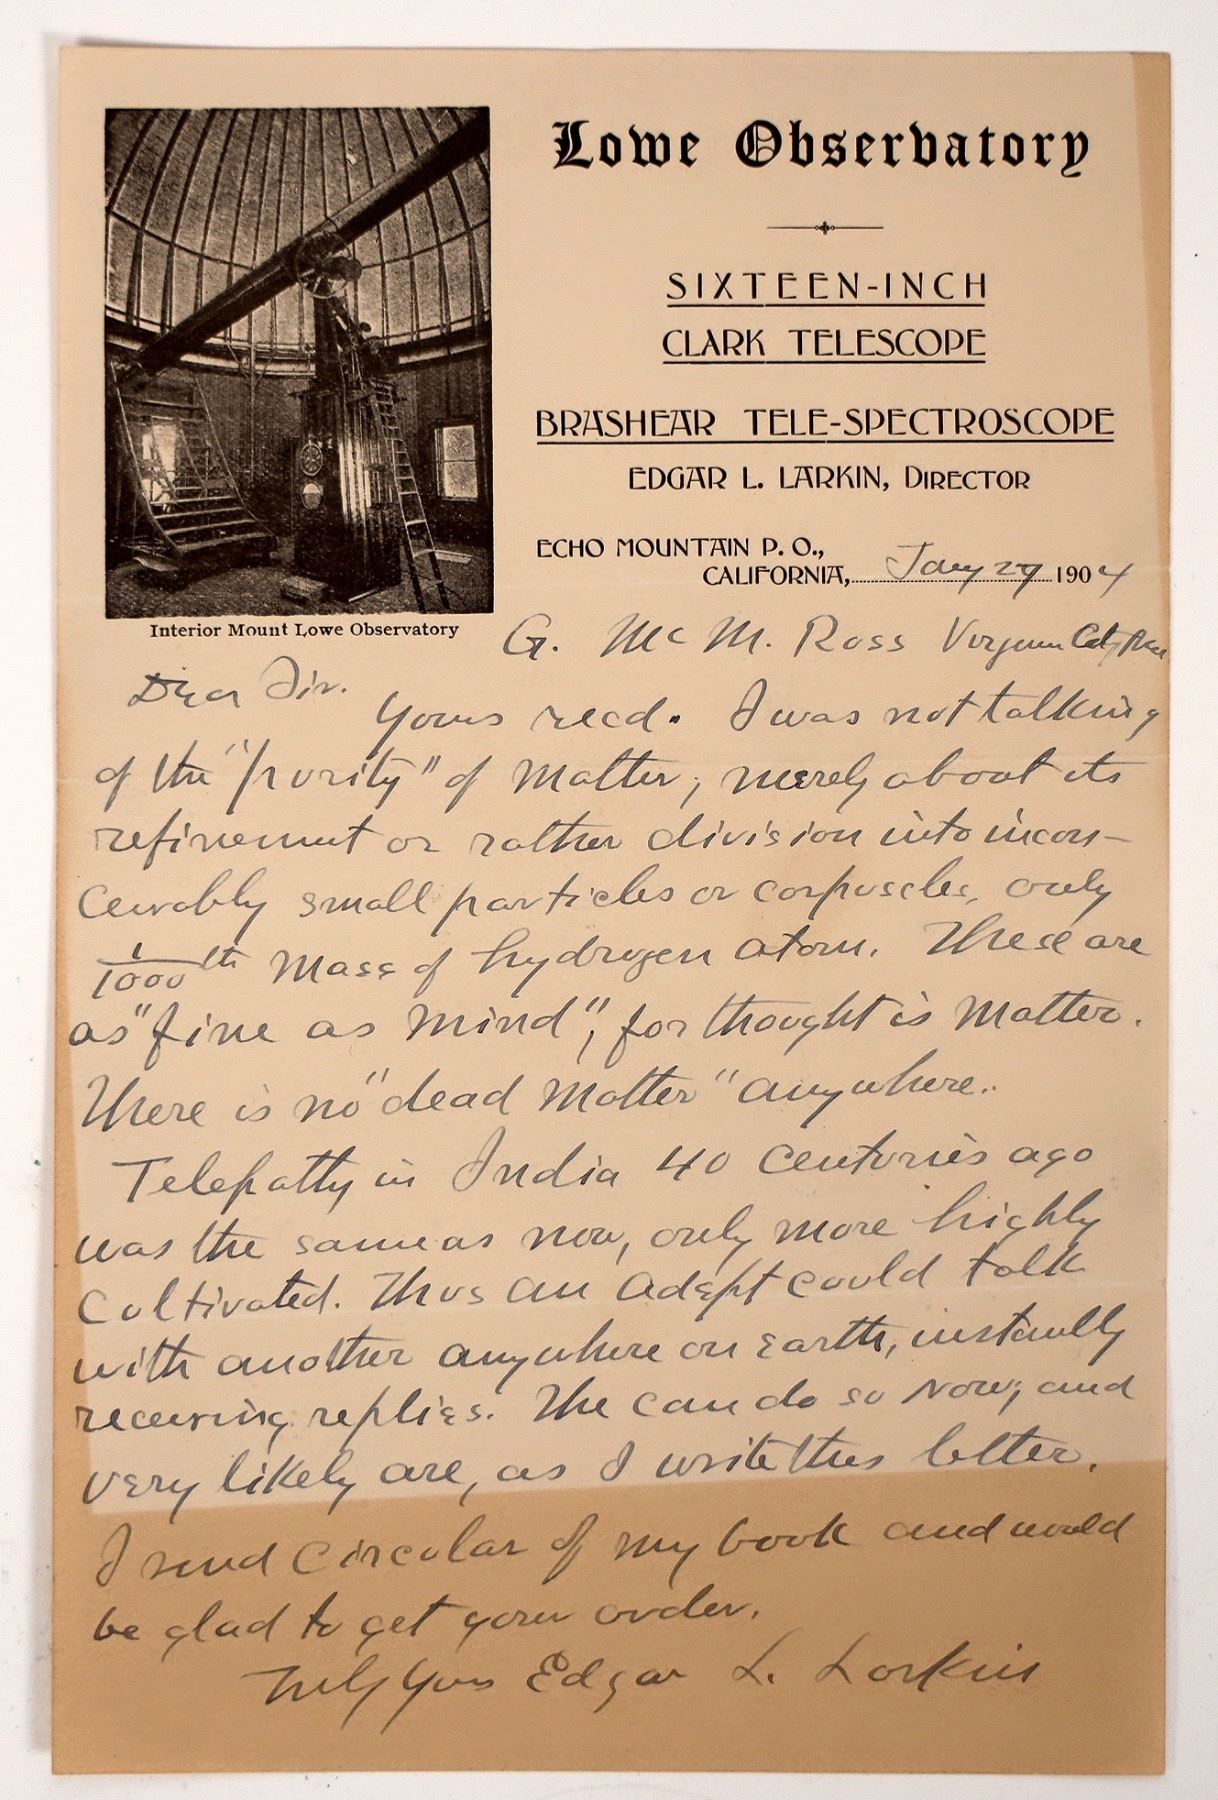 Lowe Observatory
SIXTEEN-INCH
CLARK TELESCOPE
BRASHEAR TELE-SPECTROSCOPE
EDGAR L. LARKIN, DIRECTOR
ECHO MOUNTAIN P. O.,
CALIFORNIA, Jany 29 1904
Interior Mount Lowe Observatory
G. Mc M. Ross Virginia City
Dear Sir.
Yours recd. I was not talking
of the "purity" of matter, merely about its
refinement or rather division into incon-
ceivably small particles or corpuscles, only
1/1000th mass of hydrogen atom. These are
as "fine as mind", for thought is matter.
There is no "dead matter" anywhere..
Telepathy in India 40 centuries ago
was the same as now, only more highly
cultivated. Thus an adept could talk
with another anywhere on earth, instantly
receiving replies. The can do so now; and
very likely are, as I write this letter.
I send circular of my book and would
be glad to get your order.
Truly Yours Edgar L. Larkin